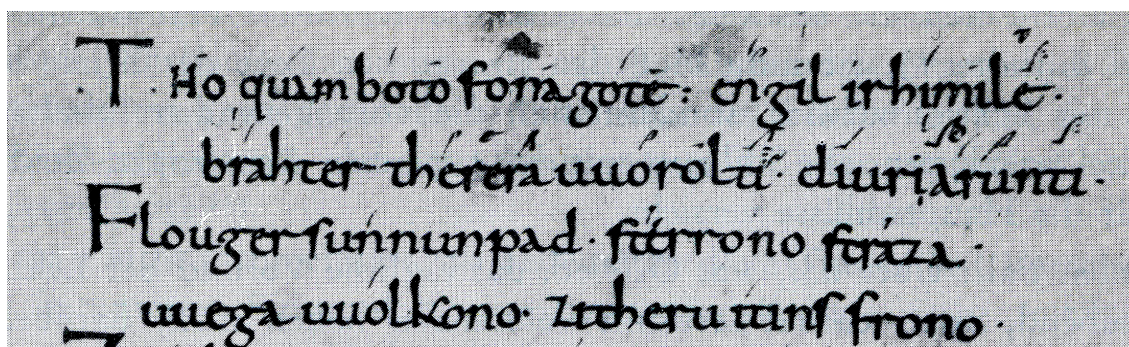 THo quam boto fona gote : engil ir himile ·
brahter therera uuorolti · diuri arunti ·
Floug er sunnun pad · sterrono straza ·
uuega uuolkono · zi theru itins frono ·